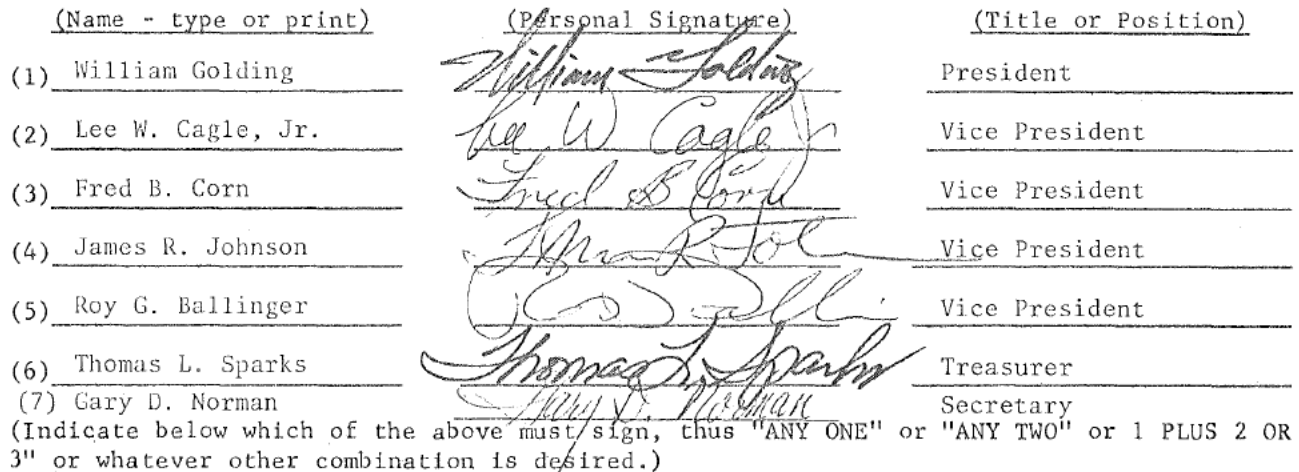 (Name - type or print) (Personal Signature) (Title or Position)
(1) William Golding William Golding President
(2) Lee W. Cagle, Jr. Lee W Cagle Jr Vice President
(3) Fred B. Corn Fred B Corn Vice President
(4) James R. Johnson Vice President
(5) Roy G. Ballinger Vice President
(6) Thomas L. Sparks Thomas L. Sparks Treasurer
(7) Gary D. Norman Gary D. Norman Secretary
(Indicate below which of the above must sign, thus "ANY ONE" or "ANY TWO" or 1 PLUS 2 OR
3" or whatever other combination is desired.)